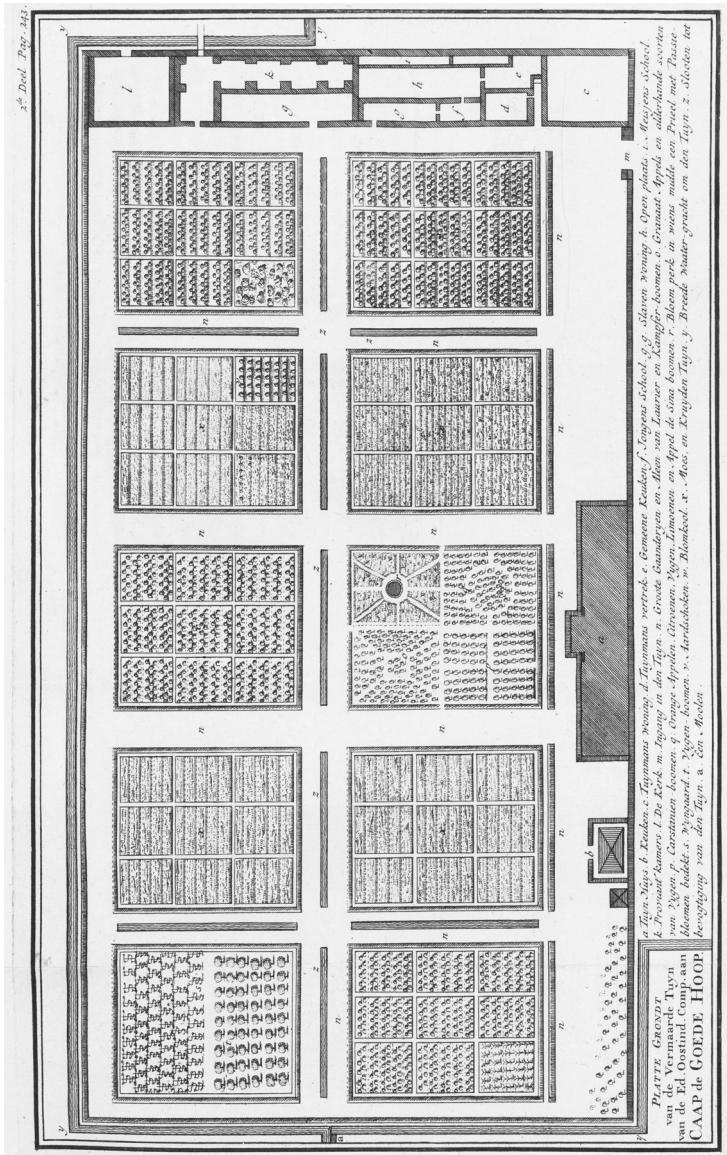 2de Deel Pag. 243.
PLATTE GRONDT
van de Vermaarde Tuyn
van de Ed. Oostind. Comp. aan
CAAP de GOEDE HOOP.
a Tuyn Huys. b Keuken. c Tuynmans Woning d Tuynmans vertrek. e Gemeene Keuken. f Jongens School. g. g. Slaven Woning. h. Open plaats i. Meisjens School.
k Proviant kamers. l De Kerk. m Ingang in den Tuyn. n Groote Gaanderyen en Aleen van Laurier en Kampfer-boomen. o Granaat-Appels en alderhande soorten
van Vygen. p. Carstanien boomen. q Orange-Appelen. Citroenen. Vygen. Limoenen en Appel de Sina boomen. r Bloem perk in wiens midde een Prieel met Passie-
bloemen bedekt. s. Wyngaard. t. Vygen boomen. v. Aardschoken. w. Blomkool. x. Moes, en Kruyden Tuyn. y. Breede Waater-gracht om den Tuyn. z. Slooten tot
bevogtiging van den Tuyn. a. Een Moolen.
y
y
l
k
i
h
g
g
f
e
d
c
m
n
n
n
z
z
n
x
n
n
n
z
n
a
n
n
n
z
x
x
n
b
n
z
n
n
y
a
y